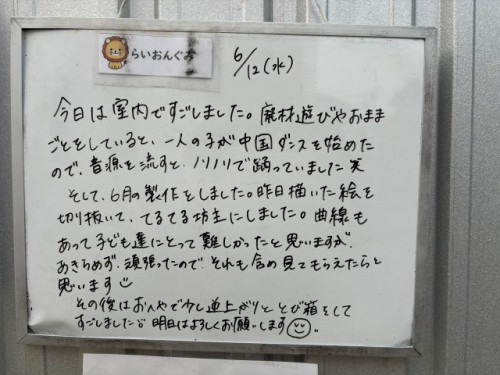 らいおんぐみ
6/12(水)
今日は室内ですごしました。廃材遊びやおまま
ごとをしていると、一人の子が中国ダンスを始めた
ので、音源を流すと、ノリノリで踊っていました笑
そして、6月の製作をしました。昨日描いた絵を
切り抜いて、てるてる坊主にしました。曲線も
あって子ども達にとって難しかったと思いますが、
あきらめず、頑張ったので、それも含め見てもらえたらと
思います
その後はおへやで少し逆上がりととび箱をして
すごしました 明日はよろしくお願いします